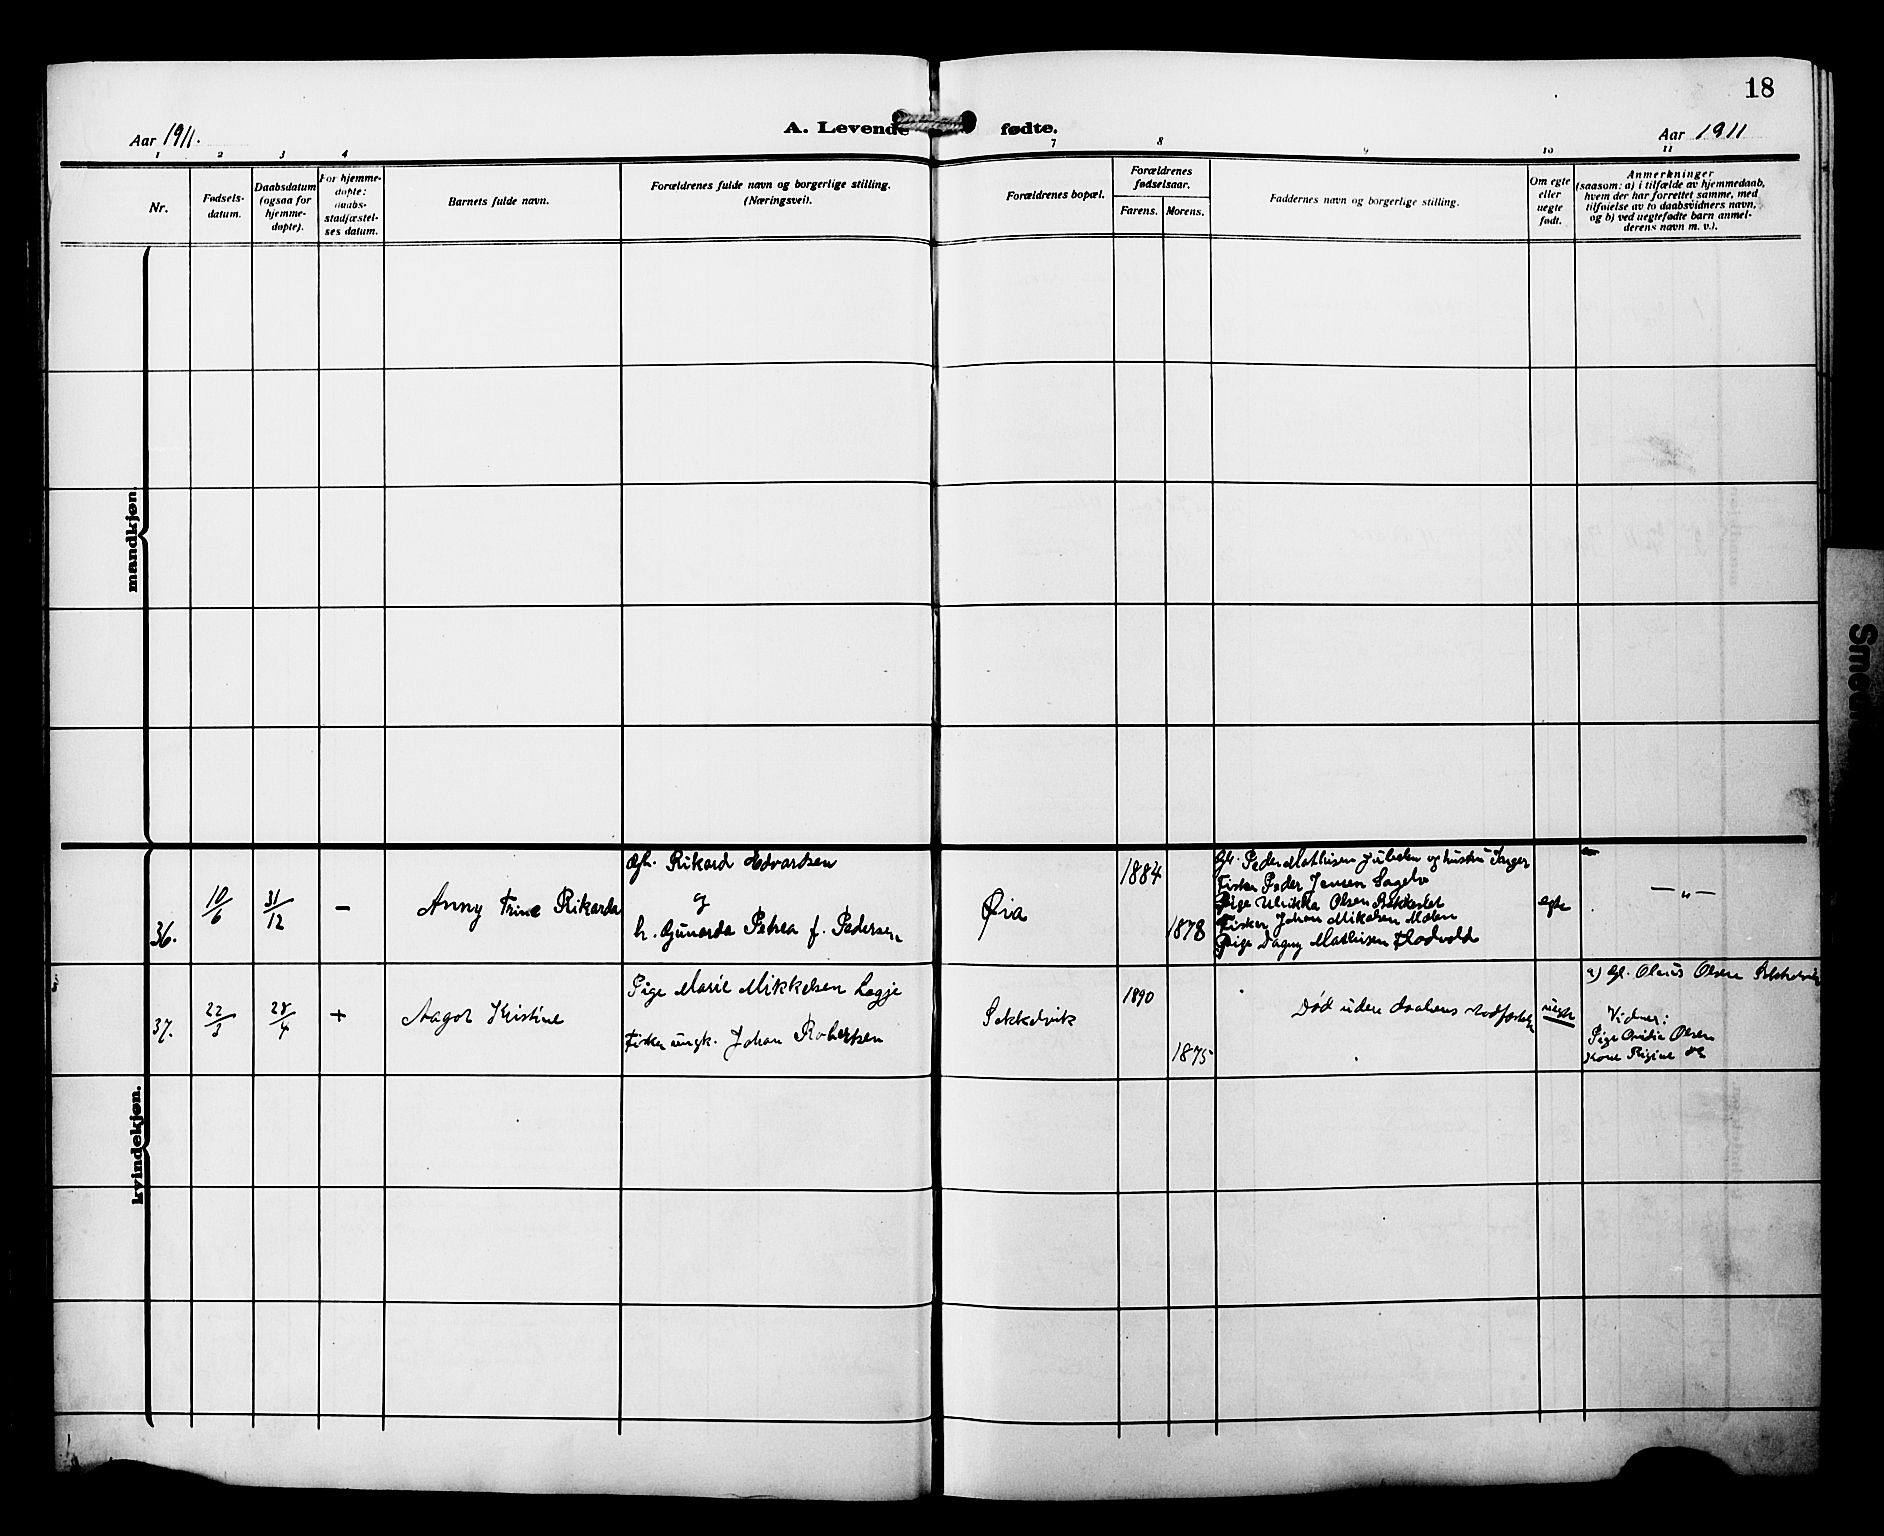 18
Aar 1911.
A. Levende fødte.
Aar 1911
1 2 3 4 7 8 9 10 11
Nr.
Fødsels-
datum.
Daabsdatum
(ogsaa for
hjemme-
døpte).
For hjemme-
døpte:
daabs-
stadfæstel-
ses datum.
Barnets fulde navn.
Forældrenes fulde navn og borgerlige stilling.
(Næringsvei).
Forældrenes bopæl.
Forældrenes
fødselsaar.
Farens. Morens.
Faddernes navn og borgerlige stilling.
Om egte
eller
uegte
født.
Anmerkninger
(saasom: a) i tilfælde av hjemmedaab,
hvem der har forrettet samme, med
tilføielse av to daabsvidners navn,
og b) ved uegtefødte barn anmel-
derens navn m. v.).
mandkjøn.
kvindekjøn.
36.
10/6
31/12
–
Anny Trine Rikarda
Gbr. Rikard Edvardsen
og
h. Gunarda Petrea f. Pedersen
Øia
1884
1878
Gbr. Peder Mathisen og hustru Inger
Fisker Peder Jensen
Pige Ulrikka Olsen
Fisker Johan Mikalsen
Pige Dagny Mathisen
egte
— " —
37.
22/3
28/4
+
Aagot Kristine
Pige Marie Mikkelsen
Fisker ungk. Johan Robertsen
1890
1875
Død uden daabens stadfæstelse
uegte
a) Gbr. Olaus Olsen
Vidner:
Pige Olsen
Kone
Smø